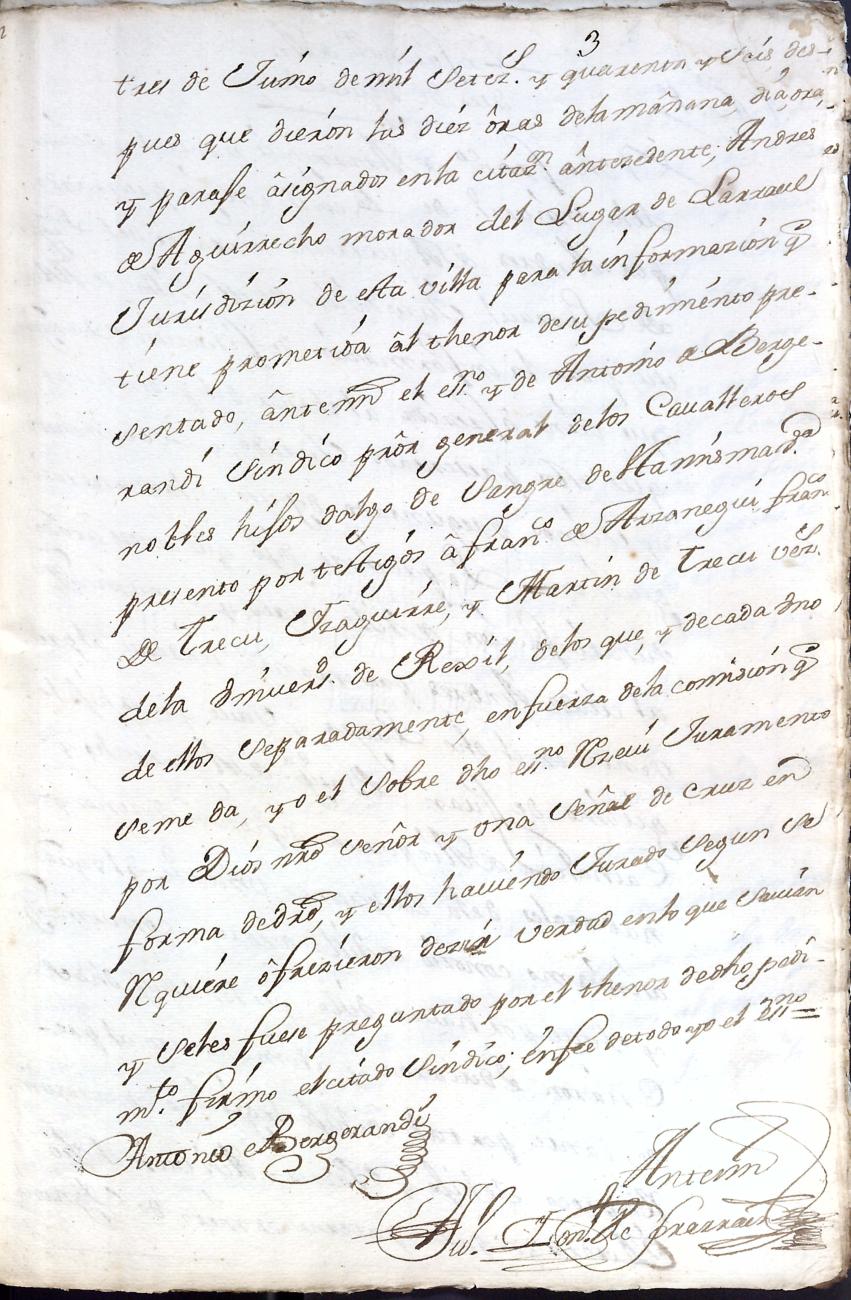 3
tres de Junio de mil Setez.s y quarenta y seis des-
pues que dieròn las diéz ôras dela mañana, diâ, ora,
y paraſe âsignados enla citaz.on ântezedente, Andres
de Aguirrecho morador del Lugar de Larraul
Jurisdizión de esta villa para la informazión q.e
tiene prometida âl thenor desu pedimento pre-
sentado, ânte mi el ess.no y de Antonio de Berge-
randi Sindico prôr general delos Cavalleros
nobles hijos dalgo de Sangre de
presento por testigos â fran.co de Arzanegui fran.co
De Trecu, Yzaguirre, y Martin de Trecu vez.s
dela Vnivers.d de Rexil, delos que, y de cada vno
de ellos separadamente, en fuerza dela comisión q.e
seme da, yo el sobre dho ess.no Rreciví Juramento
por Diós nrô Señôr y vna Señal de Cruz en
forma de drô, y ellos haviéndo Jurado segun se
Rquiére ôfrezieron dezir verdad enlo que savian
y seles fuese preguntado por el thenor de dho pedi-
m.to firmo el citado Síndico; en fee de todo yo el ess.no
Antonio de Bergerandi
Ante mi